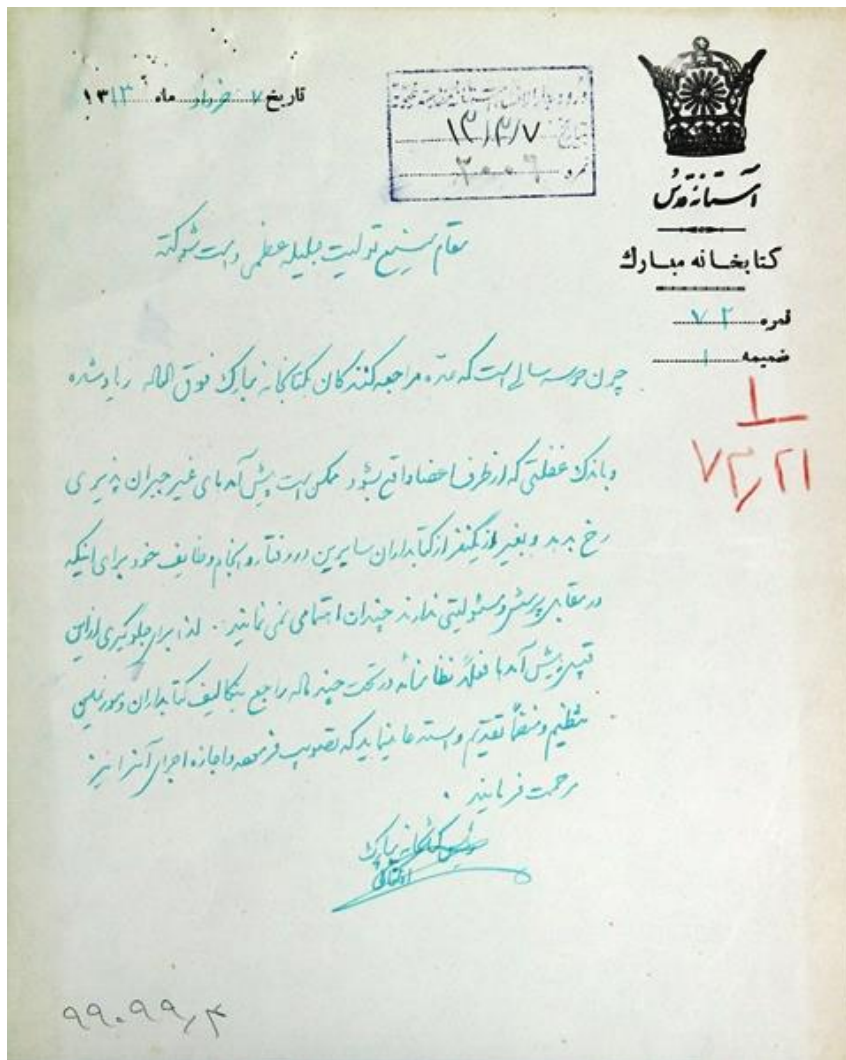 تاریخ ۷ خرداد ماه ۱۳۱۳
ورود بدارالانشاء آستانه مقدسه رضویه
بتاریخ ۱۳/۳/۷
نمره ۲۰۰۶
آستانه قدس
کتابخانه مبارك
نمره ۷۲
ضمیمه ۱
مقام منیع تولیت جلیله عظمی دامت شوکته
چون دو سه سالی است که عده مراجعه کنندگان بکتابخانه مبارکه فوق العاده زیاد شده
و باندک غفلتی که از طرف اعضا واقع بشود ممکن است پیش آمدهای غیر جبران پذیری
رخ بدهد و بغیر از یکنفر از کتابداران سایرین در رفتار و انجام وظایف خود برای اینکه
در مقابل پرسش و مسئولیتی ندارند چندان اهتمامی نمی نمایند . لذا برای جلوگیری از این
قبیل پیش آمدها فعلاً نظامنامه در تحت چند ماده راجع بتکالیف کتابداران
تنظیم و منضماً تقدیم و استدعا مینماید که تصویب فرموده و اجازه اجرای آنرا نیز
مرحمت فرمایند .
رئیس کتابخانه مبارکه
اوکتائی
۱
۷۳٫۲۱
۹۹۰۹۹٫۴